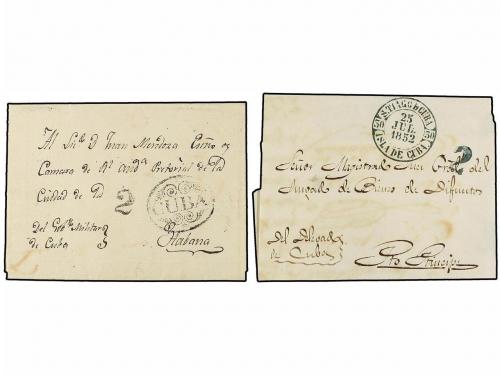 Al Sr. D. Juan Mendoza Essno es
Camara de Rl. Audª Pretorial de la
Ciudad de la
2
CUBA
Del Gobno Militar
de Cuba
Habana
S.TIAGO DE CUBA
25
JUL.
1852
ISLA DE CUBA.
2
Señor Magistrado Juez Gral. del
Juzgado de Bienes de Difuntos
Del Juzgado
de Cuba
Pto. Principe